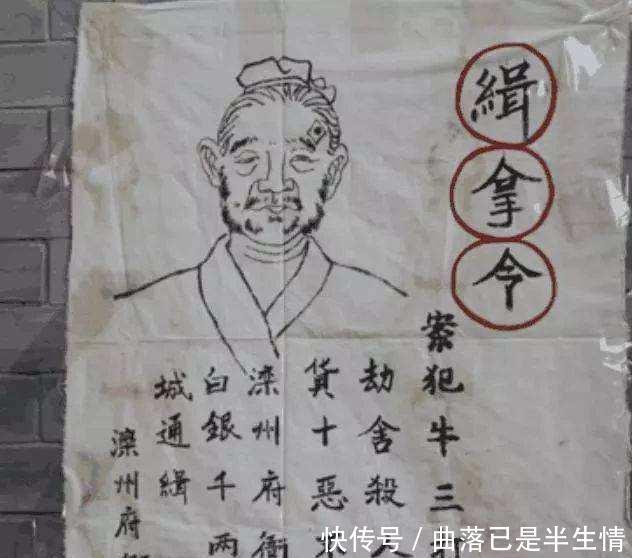 緝拿令
案犯牛三
劫舍殺人
貨十惡
滦州府衙
白銀千两
城通緝
滦州府
快传号 / 曲落已是半生情